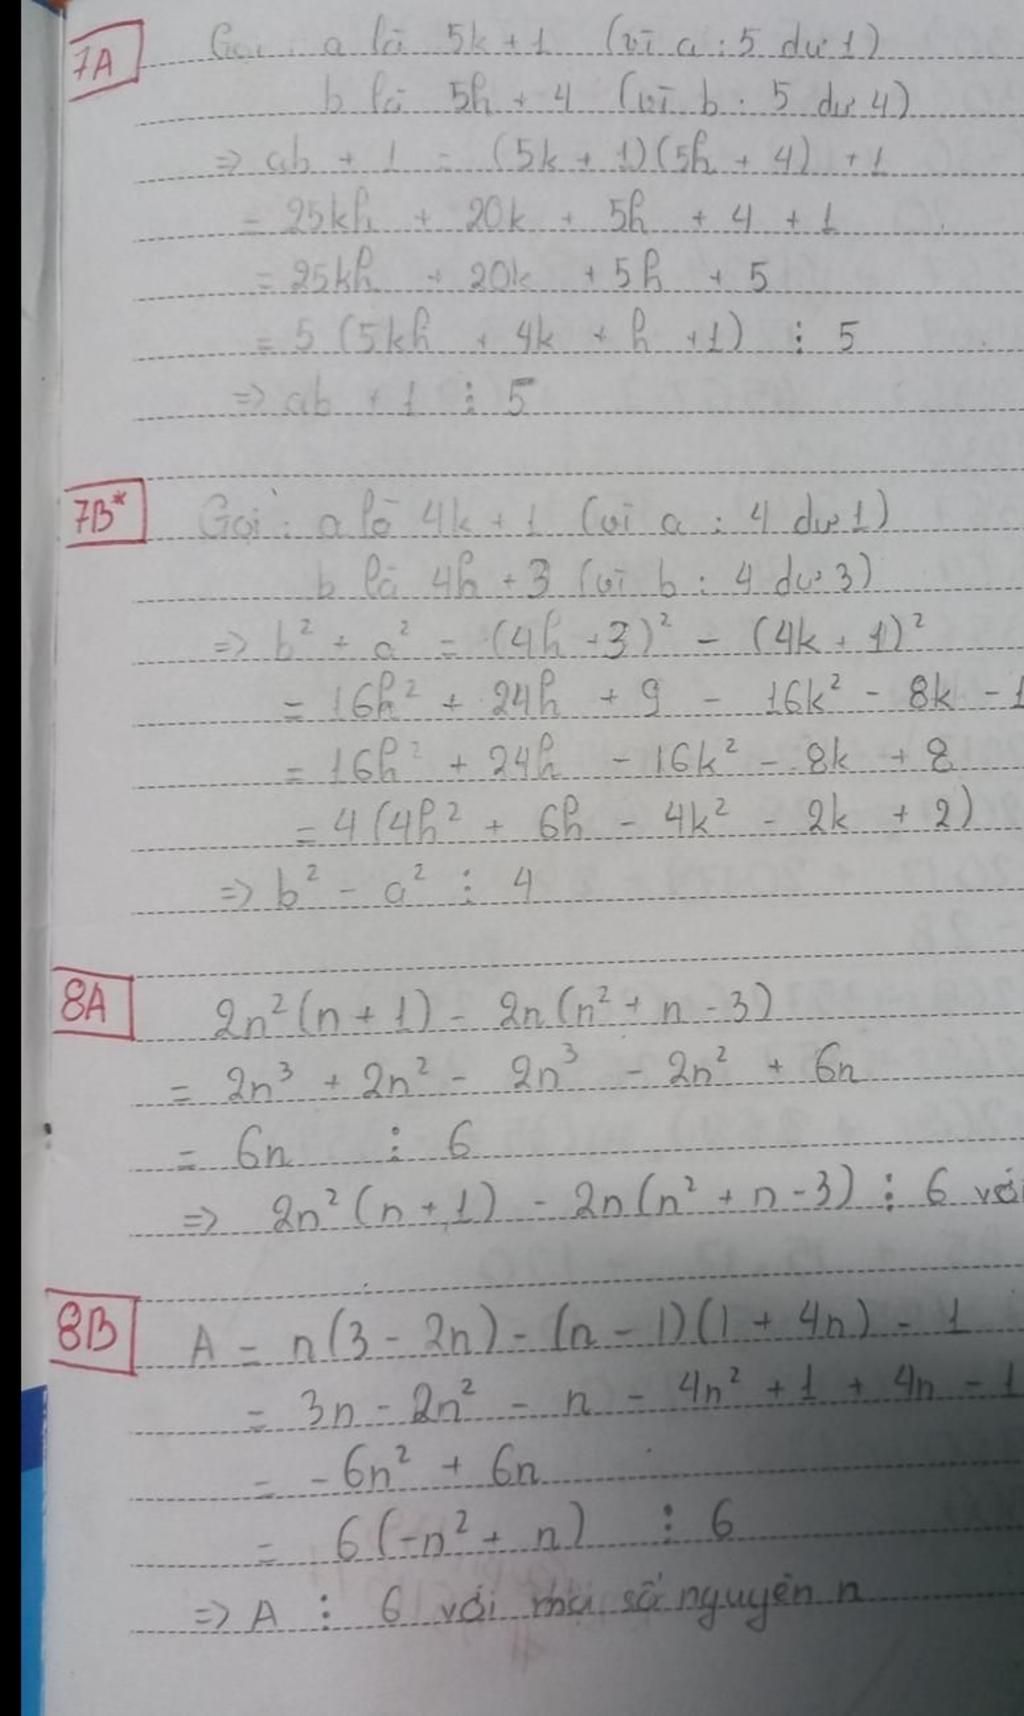 7A Gọi: a là 5k + 1 (vì a : 5 dư 1)
b là 5h + 4 (vì b : 5 dư 4)
=> ab + 1 = (5k + 1)(5h + 4) + 1
= 25kh + 20k + 5h + 4 + 1
= 25kh + 20k + 5h + 5
= 5 (5kh + 4k + h + 1) ⋮ 5
=> ab + 1 ⋮ 5
7B* Gọi: a là 4k + 1 (vì a : 4 dư 1)
b là 4h + 3 (vì b : 4 dư 3)
=> b² - a² = (4h + 3)² - (4k + 1)²
= 16h² + 24h + 9 - 16k² - 8k - 1
= 16h² + 24h - 16k² - 8k + 8
= 4 (4h² + 6h - 4k² - 2k + 2)
=> b² - a² ⋮ 4
8A 2n² (n + 1) - 2n (n² + n - 3)
= 2n³ + 2n² - 2n³ - 2n² + 6n
= 6n ⋮ 6
=> 2n² (n + 1) - 2n (n² + n - 3) ⋮ 6 với
8B A = n (3 - 2n) - (n - 1)(1 + 4n) - 1
= 3n - 2n² - n - 4n² + 1 + 4n - 1
= -6n² + 6n
= 6 (-n² + n) ⋮ 6
=> A ⋮ 6 với mọi số nguyên n